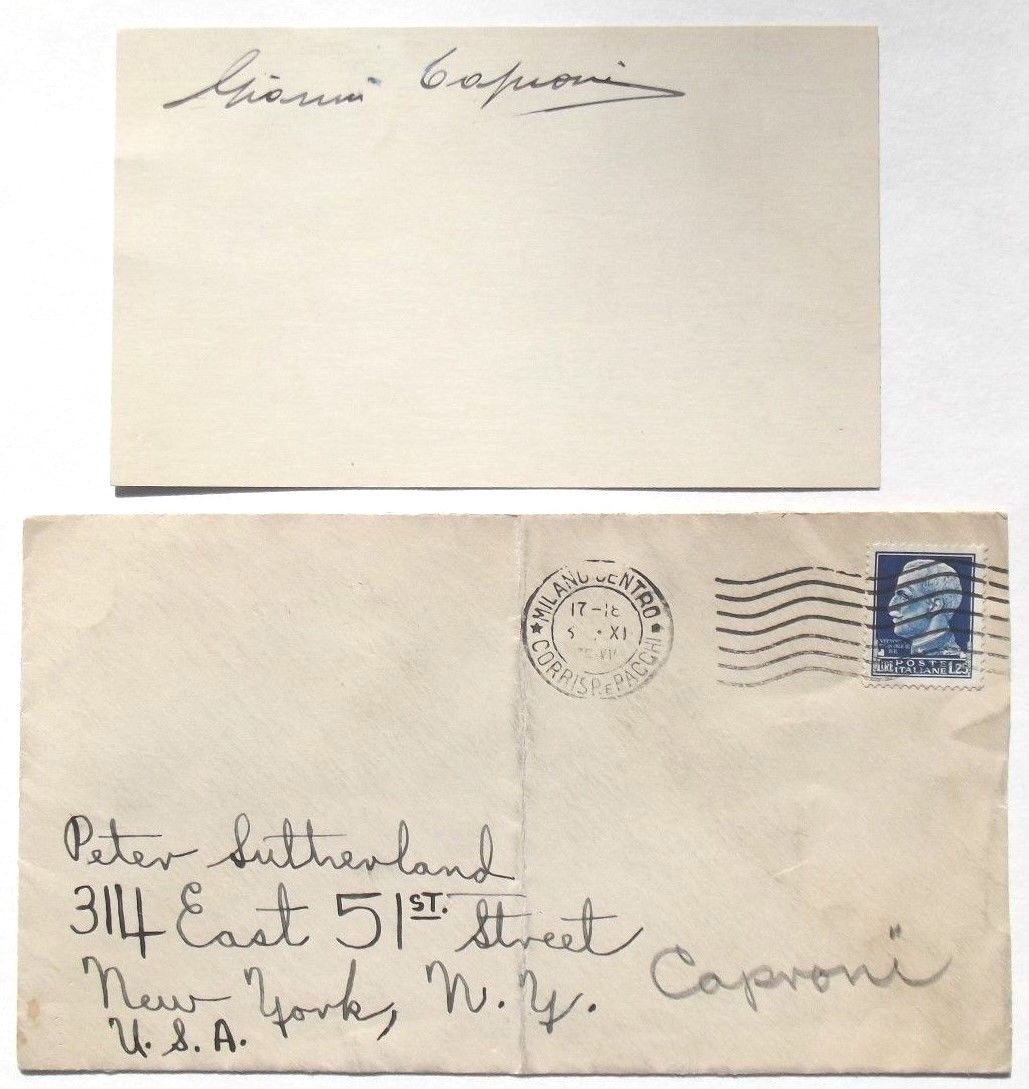 Gianni Caproni
MILANO CENTRO
17-18
XI
CORRISP. E PACCHI
LIRE POSTE ITALIANE 1.25
Peter Sutherland
314 East 51ST. Street
New York, N.Y.
U.S.A.
Caproni